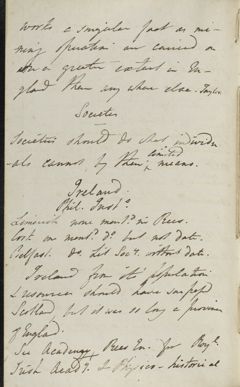 works a singular fact as mi-
ning operations are carried on
upon a greater extent in En-
gland than any where else. Taylor
Societies
Societies should do what individu-
als cannot by their limited means.
Ireland.
Phil. Inst.
Limerick none ment.d in Rees.
Cork an ment.d d.o but not date.
Belfast. d.o Lit Soc.y without date.
Ireland from its population
& resources should have surpassed
Scotland but it was so long a province
of England.
See Academy Rees En. for Roy.l
Irish Acad.y & Physico-historical